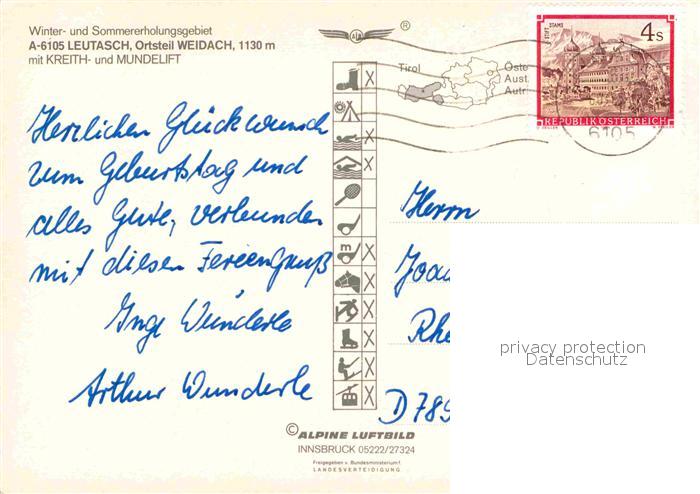 Winter- und Sommererholungsgebiet
A-6105 LEUTASCH, Ortsteil WEIDACH, 1130 m
mit KREITH- und MUNDELIFT
®
STIFT STAMS
4 S
REPUBLIK ÖSTERREICH
Tirol
Öste
Aust
Autr
6105
X
X
X
m X
X
X
X
X
X
Herzlichen Glückwunsch
zum Geburtstag und
alles Gute, verbunden
mit diesen Feriengruß
Inge Wunderle
Arthur Wunderle
Herrn
Joac
Rhe
D 789
privacy protection
Datenschutz
© ALPINE LUFTBILD
INNSBRUCK 05222/27324
Freigegeben v. Bundesministerium f.
LANDESVERTEIDIGUNG